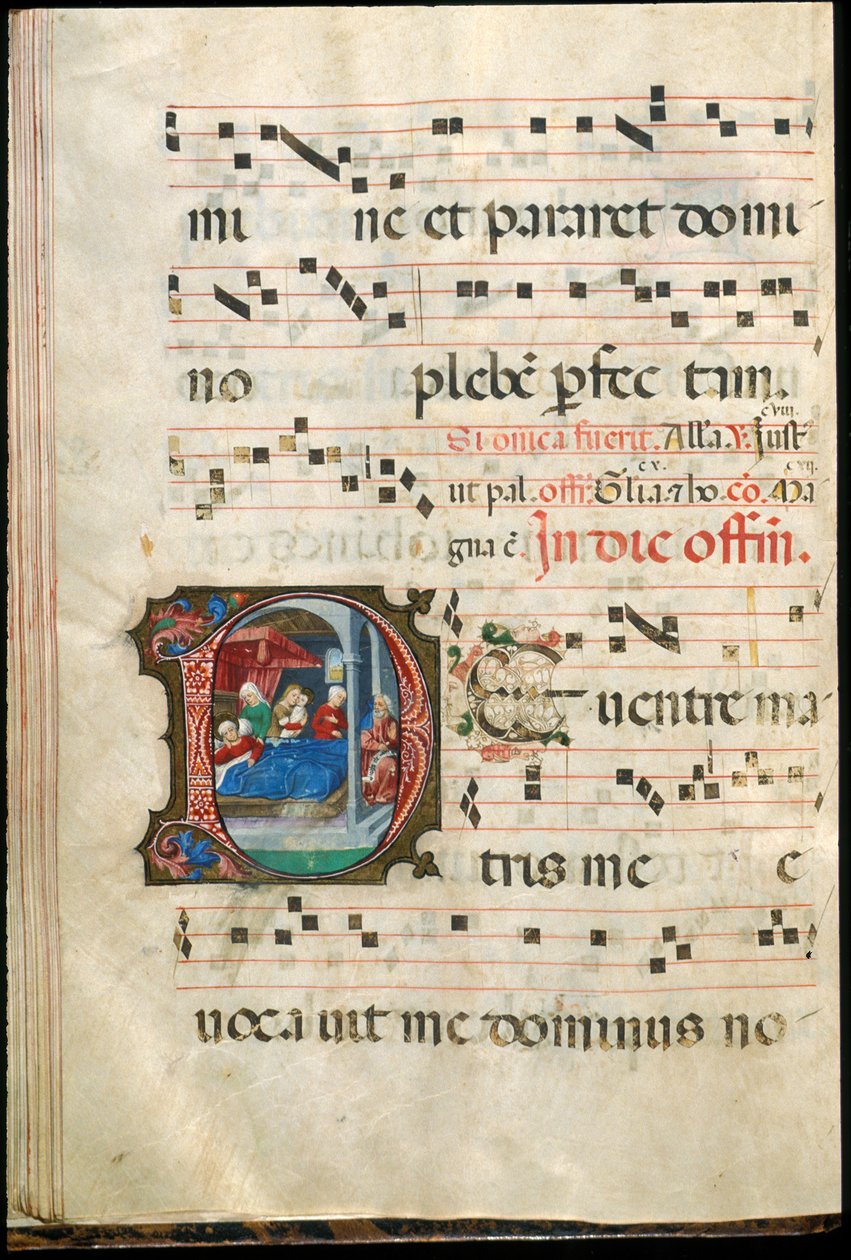 mi ne et pararet domi
no plebē ꝑfec tam.
cviii.
Si onica fuerit. All'a. ℣. Just'
cx. cxii.
ut pal. offr̄. Gl'ia ⁊ ho. cō. Ma
gna ē. In die offm̄.
DE uentre ma
tris me e
uoca uit me dominus no